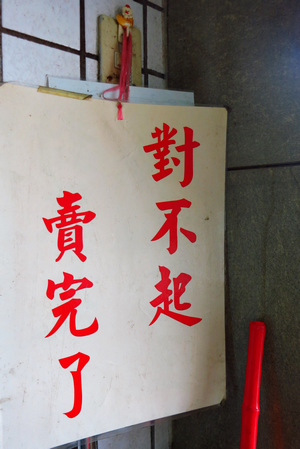 對不起
賣完了